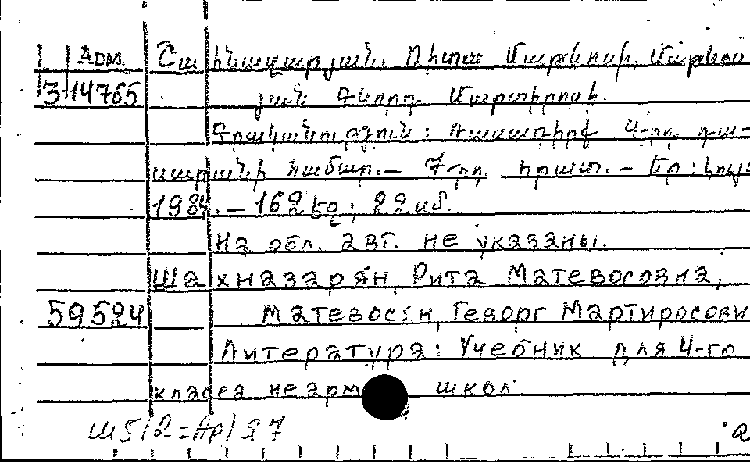 Адм. Շահնազարյան, Ռիտա Մաթևոսի, Մաթևոս-
3-14765 յան Գևորգ Մարտիրոսի.
Գրականություն: Դասագիրք 4-րդ դա-
սարանի համար.— 7-րդ հրատ.— Եր.: Լույս
198 .— 162 էջ; 22 սմ.
На обл. авт. не указаны.
Шахназарян, Рита Матевосовна,
59524 Матевосян, Геворг Мартиросови
Литература: Учебник для 4-го
класса неарм школ
Ш5/2=Ар/Я7